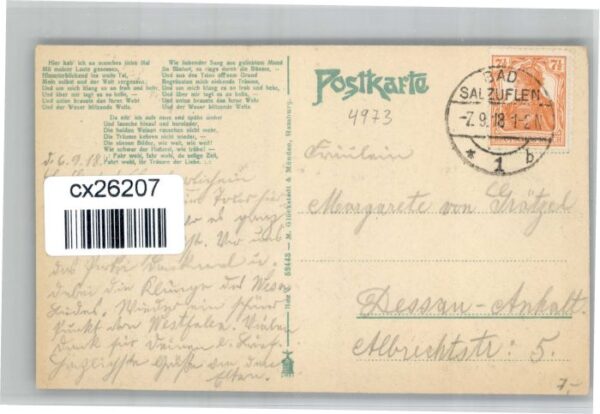 Hier hab' ich so manches liebe Mal
Mit meiner Laute gesessen,
Hinunterblickend ins weite Tal,
Mein selbst und der Welt vergessen;
Und um mich klang es so froh und hehr,
Und über mir tagt es so helle,
Und unten brauste das ferne Wehr
Und der Weser blitzende Welle.
Wie liebender Sang aus geliebtem Mund
So flüstert es rings durch die Bäume,
Und aus des Tales offnem Grund
Begrüßten mich nickende Träume.
Und um mich klang es so froh und hehr,
Und über mir tagt es so helle,
Und unten brauste das ferne Wehr
Und der Weser blitzende Welle.
Da sitz' ich aufs neue und spähe umher
Und lausche hinauf und hernieder;
Die holden Weisen rauschen nicht mehr,
Die Träume kehren nicht wieder,
Die süssen Bilder, wie weit, wie weit!
Wie schwer der Himmel, wie trübe!
Fahr wohl, fahr wohl, du selige Zeit,
Fahrt wohl, ihr Träume der Liebe.
Postkarte
4973
BAD
SALZUFLEN
-7.9.18 1-2N
* 1 b
7½ 7½
6.9.18
cx26207
Fräulein
Margarete von Grätzel
Dessau-Anhalt.
Albrechtstr: 5.
das Porta Denkmal u.
dabei die Klänge des Weser
liedes. Wieder ein schöner
Punkt von Westfalen. Vielen
Dank für Deinen l. Brief.
Herzlichste Grüße von Deinen
Eltern.
M. Glückstadt & Münden, Hamburg.
7,-